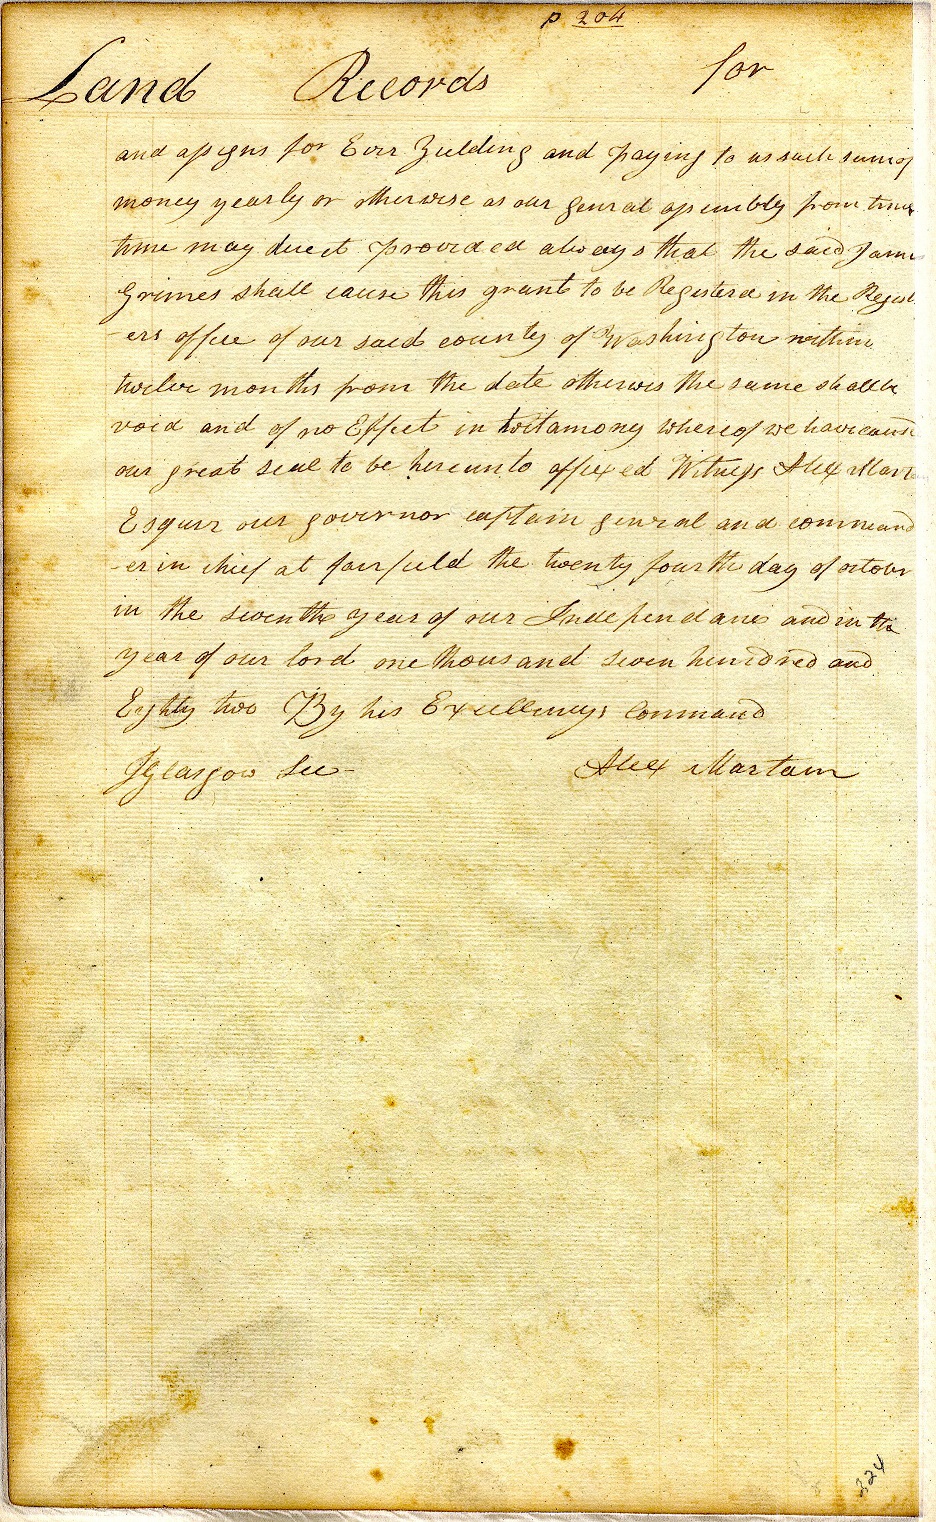 p 204
Land Records for
and assigns for Ever Yielding and paying to us such sum of
money yearly or otherwise as our genral assembly from time
time may direct provided always that the said James
Grimes shall cause this grant to be Registerd in the Regist
-ers office of our said county of Washington within
twelve months from the date otherwis the same shall be
void and of no Effect in testamony whereof we have caused
our great seal to be hereunto affixed Witness Alex Marta
Esquir our governor captain genral and command
-er in chief at fairfield the twenty fourth day of octobr
in the seventh year of our Independanc and in the
year of our lord one thousand seven hundred and
Eighty two By his Excellencys Command
J Glasgow Sec- Alex Martain
224